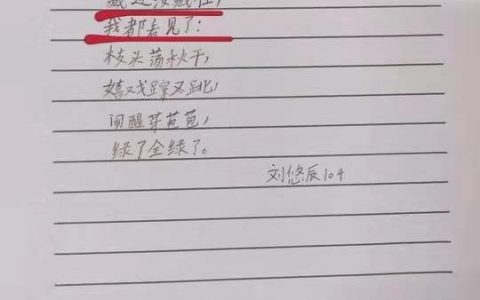 藏还没藏住，
我都看见了：
枝头荡秋千，
嬉戏蹿又跳，
闹醒芽苞苞，
绿了全绿了。
刘悠辰104